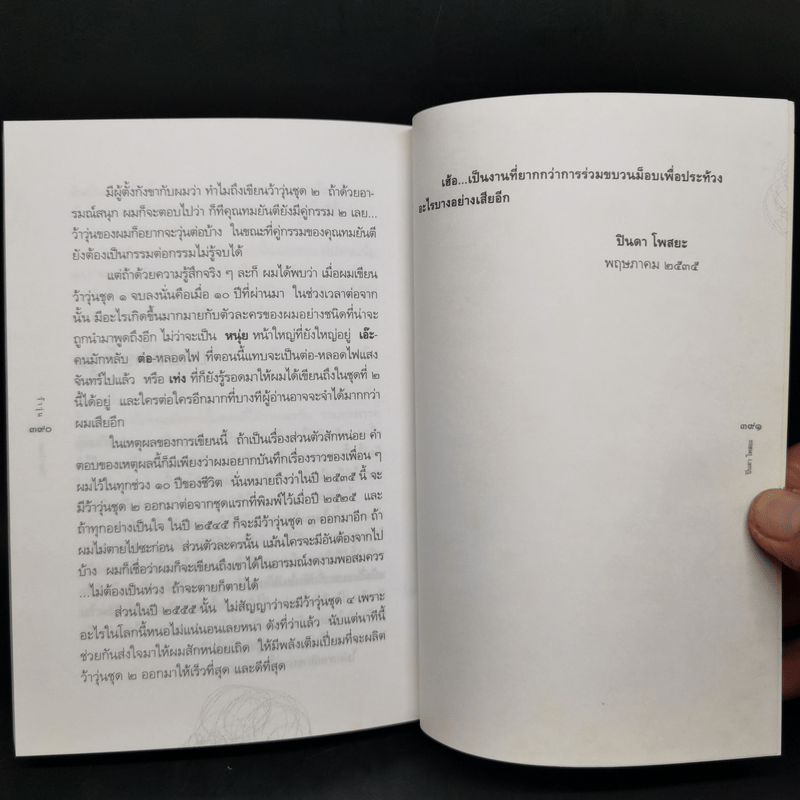 มีผู้ตั้งกังขากับผมว่า ทำไมถึงเขียนว้าวุ่นชุด ๒ ถ้าด้วยอา-
รมณ์สนุก ผมก็จะตอบไปว่า ก็ทีคุณทมยันตียังมีคู่กรรม ๒ เลย...
ว้าวุ่นของผมก็อยากจะวุ่นต่อบ้าง ในขณะที่คู่กรรมของคุณทมยันตี
ยังต้องเป็นกรรมต่อกรรมไม่รู้จบได้
แต่ถ้าด้วยความรู้สึกจริง ๆ ละก็ ผมได้พบว่า เมื่อผมเขียน
ว้าวุ่นชุด ๑ จบลงนั่นคือเมื่อ ๑๐ ปีที่ผ่านมา ในช่วงเวลาต่อจาก
นั้น มีอะไรเกิดขึ้นมากมายกับตัวละครของผมอย่างชนิดที่น่าจะ
ถูกนำมาพูดถึงอีก ไม่ว่าจะเป็น หนุ่ย หน้าใหญ่ที่ยังใหญ่อยู่ เอ๊ะ-
คนมักหลับ ต่อ-หลอดไฟ ที่ตอนนี้แทบจะเป็นต่อ-หลอดไฟแสง
จันทร์ไปแล้ว หรือ เท่ง ที่ก็ยังรู้รอดมาให้ผมได้เขียนถึงในชุดที่ ๒
นี้ได้อยู่ และใครต่อใครอีกมากที่บางทีผู้อ่านอาจจะจำได้มากกว่า
ผมเสียอีก
ในเหตุผลของการเขียนนี้ ถ้าเป็นเรื่องส่วนตัวสักหน่อย คำ
ตอบของเหตุผลนี้ก็มีเพียงว่าผมอยากบันทึกเรื่องราวของเพื่อน ๆ
ผมไว้ในทุกช่วง ๑๐ ปีของชีวิต นั่นหมายถึงว่าในปี ๒๕๓๕ นี้ จะ
มีว้าวุ่นชุด ๒ ออกมาต่อจากชุดแรกที่พิมพ์ไว้เมื่อปี ๒๕๒๕ และ
ถ้าทุกอย่างเป็นใจ ในปี ๒๕๔๕ ก็จะมีว้าวุ่นชุด ๓ ออกมาอีก ถ้า
ผมไม่ตายไปซะก่อน ส่วนตัวละครนั้น แม้นใครจะมีอันต้องจากไป
บ้าง ผมก็เชื่อว่าผมก็จะเขียนถึงเขาได้ในอารมณ์งดงามพอสมควร
...ไม่ต้องเป็นห่วง ถ้าจะตายก็ตายได้
ส่วนในปี ๒๕๕๕ นั้น ไม่สัญญาว่าจะมีว้าวุ่นชุด ๔ เพราะ
อะไรในโลกนี้หนอไม่แน่นอนเลยหนา ดังที่ว่าแล้ว นับแต่นาทีนี้
ช่วยกันส่งใจมาให้ผมสักหน่อยเถิด ให้มีพลังเต็มเปี่ยมที่จะผลิต
ว้าวุ่นชุด ๒ ออกมาให้เร็วที่สุด และดีที่สุด
ว้าวุ่น
๓๙๐
เฮ้อ...เป็นงานที่ยากกว่าการร่วมขบวนม็อบเพื่อประท้วง
อะไรบางอย่างเสียอีก
ปินดา โพสยะ
พฤษภาคม ๒๕๓๕
๓๙๑
ปินดา โพสยะ